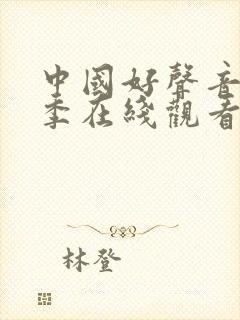 中國好聲音
季在綫觀看
林登